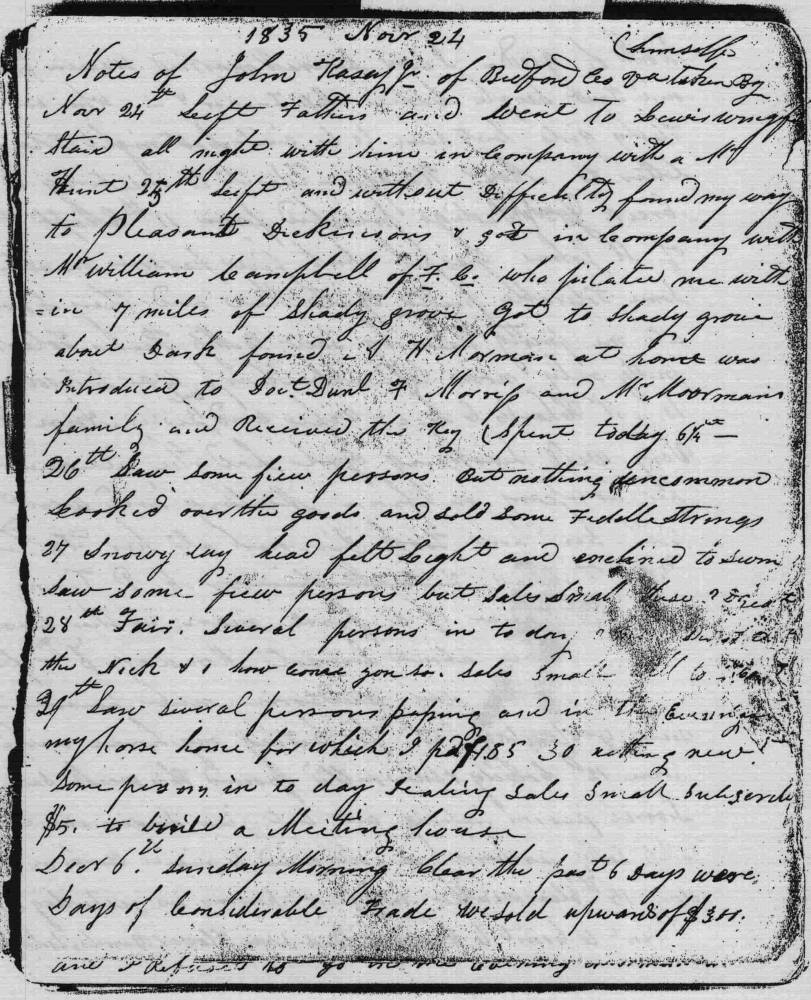 1835 Novr 24
(himself
Notes of John Kasey Jr of Bedford Co Va taken By
Novr 24th Left Fathers and Went to Lewis Wingf
Staid all night with him in Company with a Mr
Hunt 25th Left and without Difficulty found my way
to Pleasant Dickinsons & got in Company with
Mr William Campbell of F. Co. who pilated me with
=in 7 miles of Shady grove got to Shady grove
about Dark found H Morman at home was
Introduced to Doct. Danl F Morriss and Mr Moormans
family and Received the Key (Spent today 6¼
26th Saw Some fiew persons But nothing uncommon
Looked over the goods and sold Some Fiddle Strings
27 Snowy day head felt Light and enclined to Swim
Saw some fiew persons but Sales Small
28th Fair. Several persons in to day
the Nick & how come you so. Sales Small
29th Saw several persons passing and in the Evening
my horse home for which I pd $1.85 30 nothing new
Some persons in to day Sales Small Subscribe
$5. to build a Meeting house
Decr 6th Sunday Morning Clear the past 6 Days were
Days of Considerable Trade We sold upwards of $300.
and I Refused to go in the evening